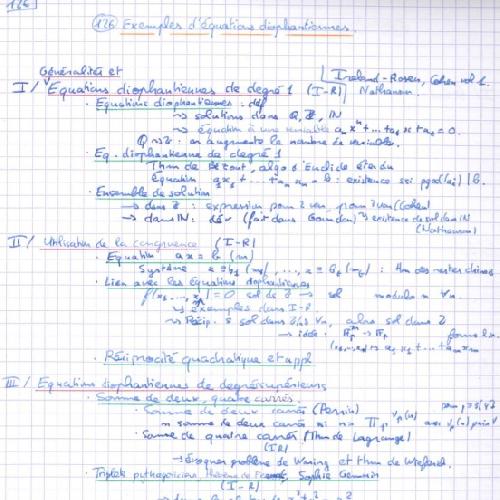 126
126 Exemples d'équations diophantiennes.
Généralités et
Ireland-Rosen, Cohen vol 1.
I/ Equations diophantiennes de degré 1 (I-R) Nathanson.
· Equations diophantiennes : déf
→ solutions dans Q, Z, IN
→ équation à une variable a_n x^n + ... + a_1 x + a_0 = 0.
Q → Z : on augmente le nombre de variables.
· Eq. diophantienne de degré 1
Thm de Bézout, algo d'Euclide étendu
Equation a_1 x_1 + ... + a_n x_n = b : existence ssi pgcd(ai) | b.
· Ensemble de solution
→ dans Z : expression pour 2 var, pour n var (Cohen)
→ dans IN : (fait dans Gourdon) existence de sol dans IN
(Nathanson)
II/ Utilisation de la congruence (I-R)
· Equation ax ≡ b (m)
Système x ≡ b_1 (m_1), ..., x ≡ b_t (m_t) : thm des restes chinois
· Lien avec les équations diophantiennes
f(x_1, ..., x_n) = 0 sol de Z → sol modulo n ∀n.
→ exemples dans I-R
→ Récip. si sol dans Z/nZ ∀n, alors sol dans Z
→ idée.
· Réciprocité quadratique et appl
III/ Equations diophantiennes de degré supérieurs
· Somme de deux, quatre carrés.
· Somme de deux carrés (Perrin)
n somme de deux carrés ssi n = Π p^{v_p(n)} avec v_p(n) pair ∀
· Somme de quatre carrés (Thm de Lagrange)
(IR)
→ évoquer problème de Waring et thm de Wieferich.
· Triplets pythagoriciens, Sophie Germain
(I-R)